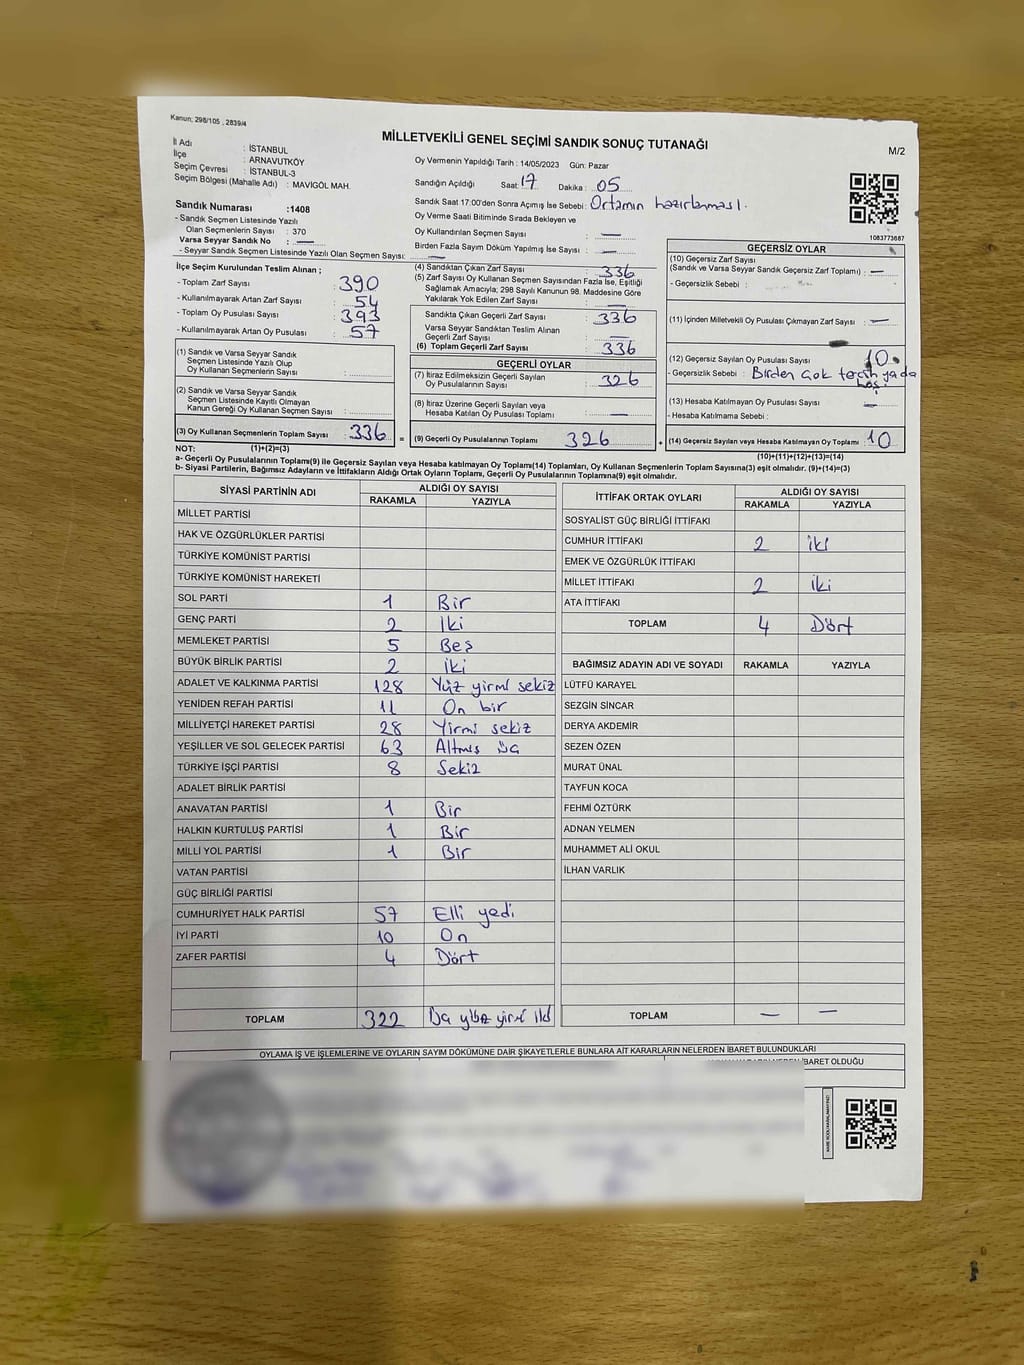 Kanun; 298/105 , 2839/4
MİLLETVEKİLİ GENEL SEÇİMİ SANDIK SONUÇ TUTANAĞI
M/2
İl Adı : İSTANBUL
İlçe : ARNAVUTKÖY
Seçim Çevresi : İSTANBUL-3
Seçim Bölgesi (Mahalle Adı) : MAVİGÖL MAH.
Sandık Numarası :1408
- Sandık Seçmen Listesinde Yazılı
Olan Seçmenlerin Sayısı : 370
Varsa Seyyar Sandık No : —
- Seyyar Sandık Seçmen Listesinde Yazılı Olan Seçmen Sayısı: —
Oy Vermenin Yapıldığı Tarih : 14/05/2023 Gün: Pazar
Sandığın Açıldığı Saat: 17 Dakika : 05
Sandık Saat 17:00'den Sonra Açımış İse Sebebi: Ortamın hazırlanması.
Oy Verme Saati Bitiminde Sırada Bekleyen ve
Oy Kullandırılan Seçmen Sayısı : —
Birden Fazla Sayım Döküm Yapılmış İse Sayısı : —
1083773687
İlçe Seçim Kurulundan Teslim Alınan ;
- Toplam Zarf Sayısı : 390
- Kullanılmayarak Artan Zarf Sayısı : 54
- Toplam Oy Pusulası Sayısı : 393
- Kullanılmayarak Artan Oy Pusulası : 57
(1) Sandık ve Varsa Seyyar Sandık
Seçmen Listesinde Yazılı Olup
Oy Kullanan Seçmenlerin Sayısı :
(2) Sandık ve Varsa Seyyar Sandık
Seçmen Listesinde Kayıtlı Olmayan
Kanun Gereği Oy Kullanan Seçmen Sayısı :
(3) Oy Kullanan Seçmenlerin Toplam Sayısı : 336 =
(1)+(2)=(3)
(4) Sandıktan Çıkan Zarf Sayısı : 336
(5) Zarf Sayısı Oy Kullanan Seçmen Sayısından Fazla İse, Eşitliği
Sağlamak Amacıyla; 298 Sayılı Kanunun 98. Maddesine Göre
Yakılarak Yok Edilen Zarf Sayısı : —
Sandıkta Çıkan Geçerli Zarf Sayısı : 336
Varsa Seyyar Sandıktan Teslim Alınan
Geçerli Zarf Sayısı : —
(6) Toplam Geçerli Zarf Sayısı : 336
GEÇERLİ OYLAR
(7) İtiraz Edilmeksizin Geçerli Sayılan
Oy Pusulalarının Sayısı : 326
(8) İtiraz Üzerine Geçerli Sayılan veya
Hesaba Katılan Oy Pusulası Toplamı : —
(9) Geçerli Oy Pusulalarının Toplamı : 326 +
GEÇERSİZ OYLAR
(10) Geçersiz Zarf Sayısı
(Sandık ve Varsa Seyyar Sandık Geçersiz Zarf Toplamı) : —
- Geçersizlik Sebebi :
(11) İçinden Milletvekili Oy Pusulası Çıkmayan Zarf Sayısı : —
(12) Geçersiz Sayılan Oy Pusulası Sayısı : 10
- Geçersizlik Sebebi : Birden çok tercih yada
boş.
(13) Hesaba Katılmayan Oy Pusulası Sayısı : —
- Hesaba Katılmama Sebebi :
(14) Geçersiz Sayılan veya Hesaba Katılmayan Oy Toplamı : 10
(10)+(11)+(12)+(13)=(14)
NOT:
a- Geçerli Oy Pusulalarının Toplamı(9) ile Geçersiz Sayılan veya Hesaba katılmayan Oy Toplamı(14) Toplamları, Oy Kullanan Seçmenlerin Toplam Sayısına(3) eşit olmalıdır. (9)+(14)=(3)
b- Siyasi Partilerin, Bağımsız Adayların ve İttifakların Aldığı Ortak Oyların Toplamı, Geçerli Oy Pusulalarının Toplamına(9) eşit olmalıdır.
SİYASİ PARTİNİN ADI ALDIĞI OY SAYISI
RAKAMLA YAZIYLA
MİLLET PARTİSİ
HAK VE ÖZGÜRLÜKLER PARTİSİ
TÜRKİYE KOMÜNİST PARTİSİ
TÜRKİYE KOMÜNİST HAREKETİ
SOL PARTİ 1 Bir
GENÇ PARTİ 2 İki
MEMLEKET PARTİSİ 5 Beş
BÜYÜK BİRLİK PARTİSİ 2 İki
ADALET VE KALKINMA PARTİSİ 128 Yüz yirmi sekiz
YENİDEN REFAH PARTİSİ 11 On bir
MİLLİYETÇİ HAREKET PARTİSİ 28 Yirmi sekiz
YEŞİLLER VE SOL GELECEK PARTİSİ 63 Altmış üç
TÜRKİYE İŞÇİ PARTİSİ 8 Sekiz
ADALET BİRLİK PARTİSİ
ANAVATAN PARTİSİ 1 Bir
HALKIN KURTULUŞ PARTİSİ 1 Bir
MİLLİ YOL PARTİSİ 1 Bir
VATAN PARTİSİ
GÜÇ BİRLİĞİ PARTİSİ
CUMHURİYET HALK PARTİSİ 57 Elli yedi
İYİ PARTİ 10 On
ZAFER PARTİSİ 4 Dört
TOPLAM 322 Üç yüz yirmi iki
İTTİFAK ORTAK OYLARI ALDIĞI OY SAYISI
RAKAMLA YAZIYLA
SOSYALİST GÜÇ BİRLİĞİ İTTİFAKI
CUMHUR İTTİFAKI 2 iki
EMEK VE ÖZGÜRLÜK İTTİFAKI
MİLLET İTTİFAKI 2 iki
ATA İTTİFAKI
TOPLAM 4 Dört
BAĞIMSIZ ADAYIN ADI VE SOYADI RAKAMLA YAZIYLA
LÜTFÜ KARAYEL
SEZGİN SİNCAR
DERYA AKDEMİR
SEZEN ÖZEN
MURAT ÜNAL
TAYFUN KOCA
FEHMİ ÖZTÜRK
ADNAN YELMEN
MUHAMMET ALİ OKUL
İLHAN VARLIK
TOPLAM — —
OYLAMA İŞ VE İŞLEMLERİNE VE OYLARIN SAYIM DÖKÜMÜNE DAİR ŞİKAYETLERLE BUNLARA AİT KARARLARIN NELERDEN İBARET BULUNDUKLARI
İBARET OLDUĞU